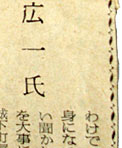 広一氏
わけで
身にな
い聞か
を大事